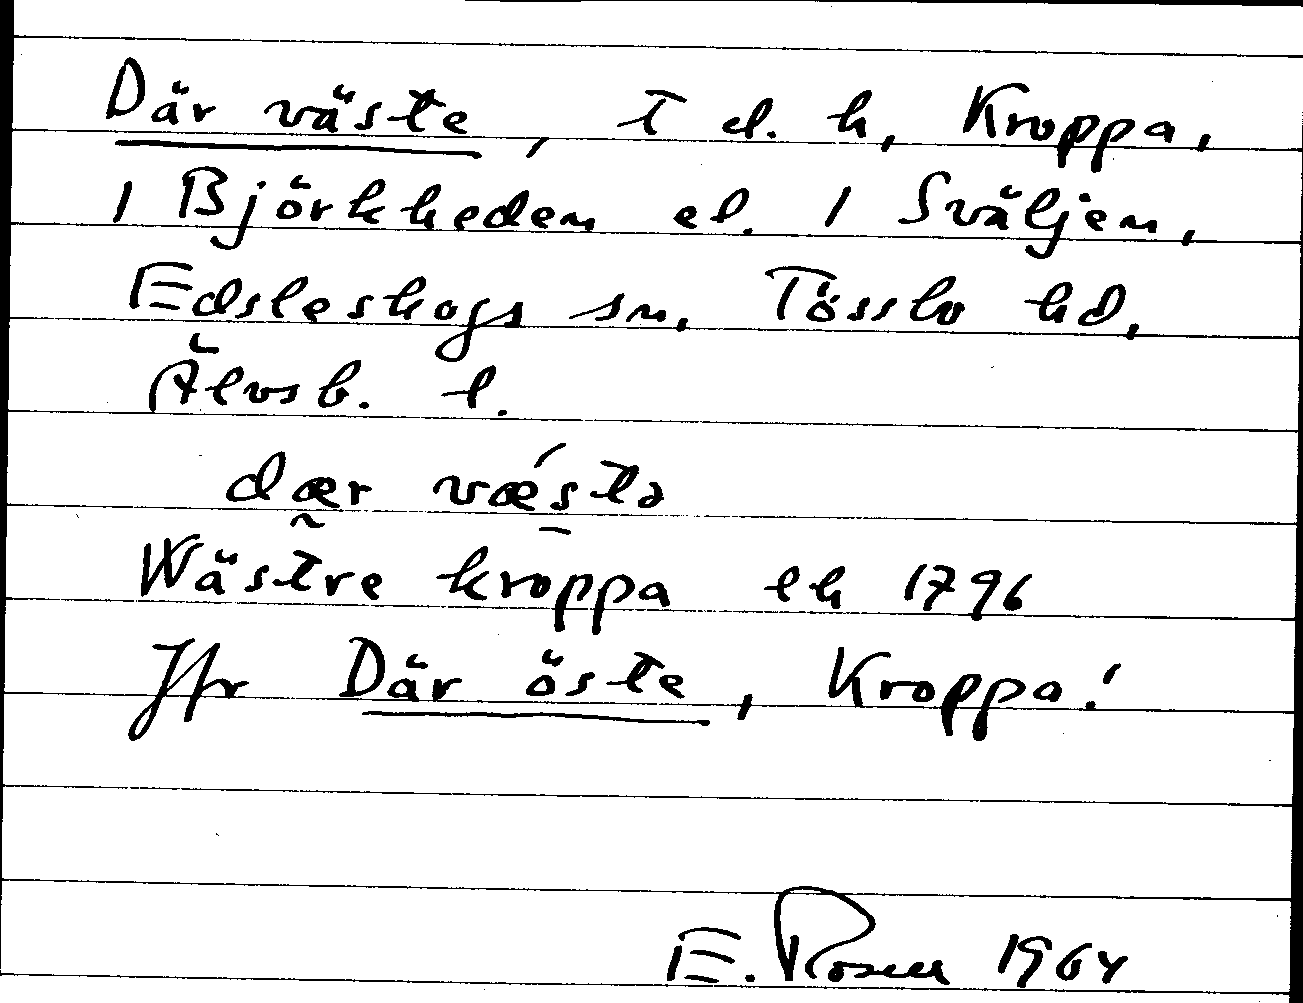 Där väste, T el. h, Kroppa,
1 Björkheden el. 1 Sväljen,
Edsleskogs sn, Tössbo hd,
Älvsb. l.
dær vǽstə
Wästre kroppa eh 1796
Jfr Där öste, Kroppa!
E. Rosell 1964